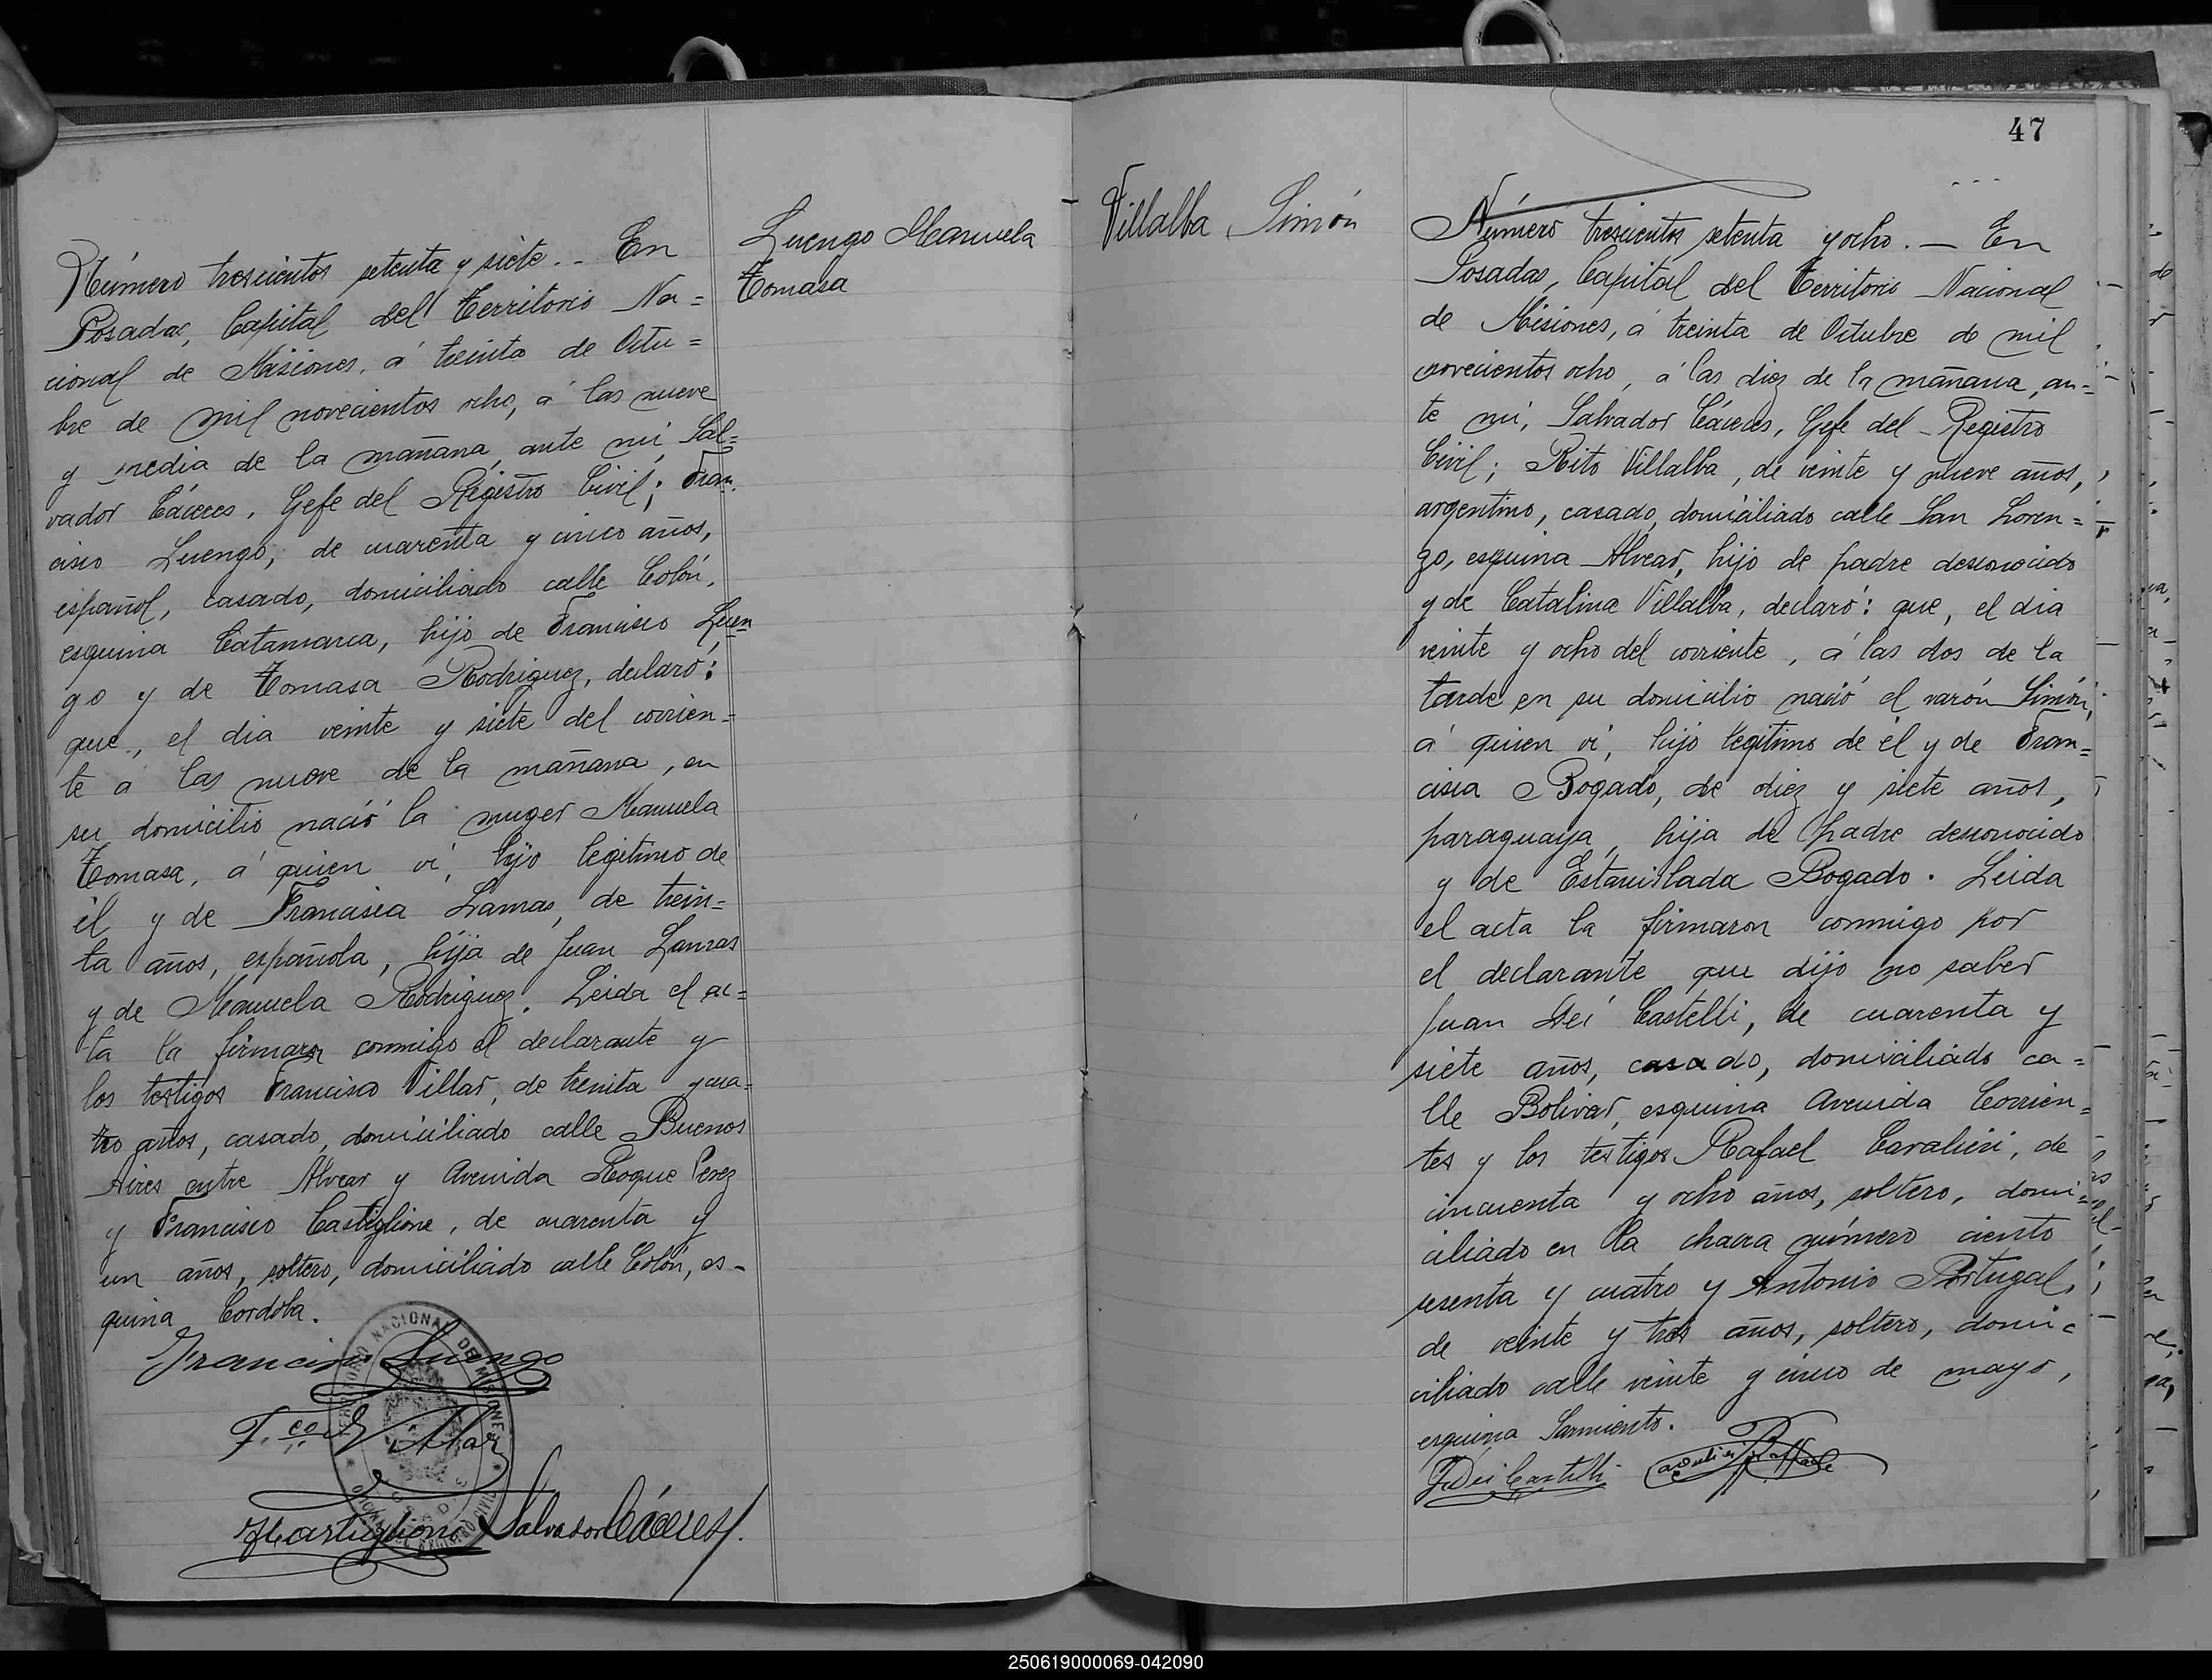 Luengo Manuela
Tomasa
Número trescientos setenta y siete.- En
Posadas, Capital del Territorio Na=
cional de Misiones, á treinta de Octu=
bre de mil novecientos ocho, á las nueve
y media de la mañana, ante mi, Sal=
vador Cáceres, Gefe del Registro Civil; Fran
cisco Luengo, de cuarenta y cinco años,
español, casado, domiciliado calle Colón,
esquina Catamarca, hijo de Francisco Luen
go y de Tomasa Rodriguez, declaró:
que, el dia veinte y siete del corrien=
te á las nueve de la mañana, en
su domicilio nació la muger Manuela
Tomasa, á quien vi, hijo legitimo de
él y de Francisca Lamas, de trein=
ta años, española, hija de Juan Lamas
y de Manuela Rodriguez. Leida el ac=
ta la firmaron conmigo el declarante y
los testigos Francisco Villar, de treinta y cua=
tro años, casado, domiciliado calle Buenos
Aires entre Alvear y Avenida Roque Perez
y Francisco Castiglione, de cuarenta y
un años, soltero, domiciliado calle Colón, es-
quina Cordoba.
Francisco Luengo
F.co Villar
FCastiglione Salvador Cáceres
TERRITORIO NACIONAL DE MISIONES
47
Villalba Simón
Número trescientos setenta y ocho.- En
Posadas, Capital del Territorio Nacional
de Misiones, á treinta de Octubre de mil
novecientos ocho, á las diez de la mañana, an=
te mi, Salvador Cáceres, Gefe del Registro
Civil; Rito Villalba, de veinte y nueve años,
argentino, casado, domiciliado calle San Loren=
zo, esquina Alvear, hijo de padre desconocido
y de Catalina Villalba, declaró: que, el dia
veinte y ocho del corriente, á las dos de la
tarde en su domicilio nació el varón Simón,
á quien vi, hijo legitimo de él y de Fran=
cisca Bogado, de diez y siete años,
paraguaya, hija de padre desconocido
y de Estanislada Bogado. Leida
el acta la firmaron conmigo por
el declarante que dijo no saber
Juan Dei Castelli, de cuarenta y
siete años, casado, domiciliado ca=
lle Bolivar, esquina Avenida Corrien=
tes y los testigos Rafael Cavalieri, de
cincuenta y ocho años, soltero, domi=
ciliado en la chacra número ciento
sesenta y cuatro y Antonio Portugal,
de veinte y tres años, soltero, domi=
ciliado calle veinte y cinco de mayo,
esquina Sarmiento.
J Dei Castelli
250619000069-042090